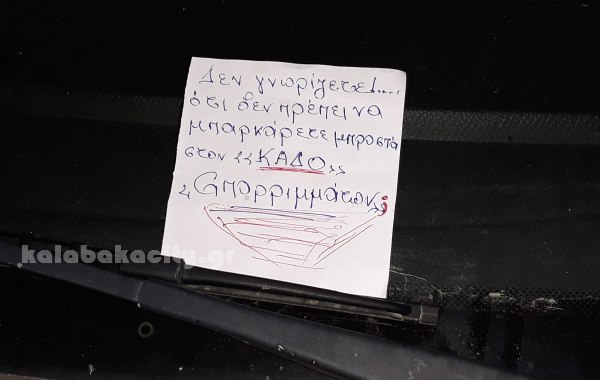 Δεν γνωρίζετε!....
ότι δεν πρέπει να
μπαρκάρετε μπροστά
στον «ΚΑΔΟ»
«Απορριμμάτων»;
kalabakacity.gr